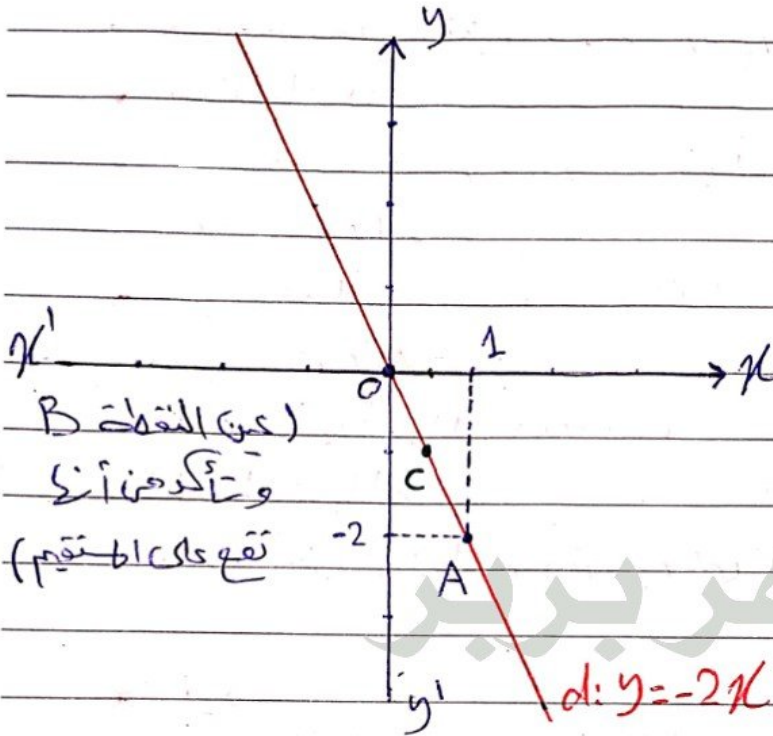 y
x'
1
x
O
(عين النقطة B
C
و تأكد من أنها
-2
تقع على المستقيم)
A
y'
d: y = -2x